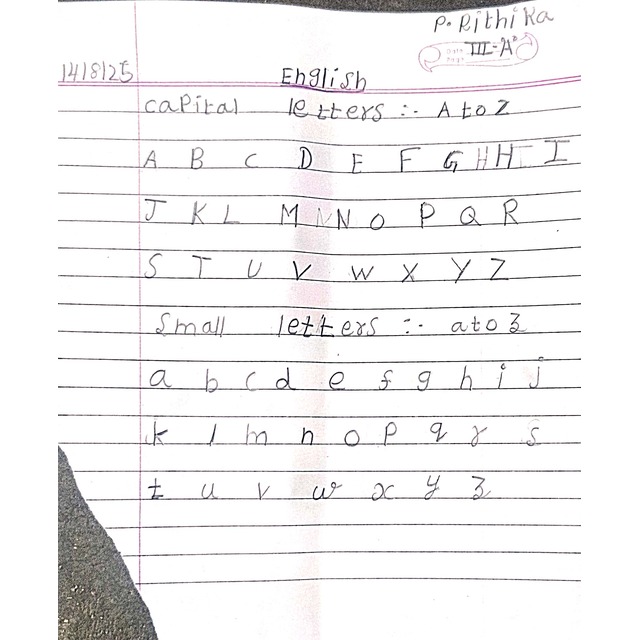 P. Rithika
III-A
14/8/25
English
Capital letters :- A to Z
A B C D E F G H H I
J K L M N N O P Q R
S T U V W X Y Z
Small letters :- a to z
a b c d e f g h i j
k l m n o p q r s
t u v w x y z